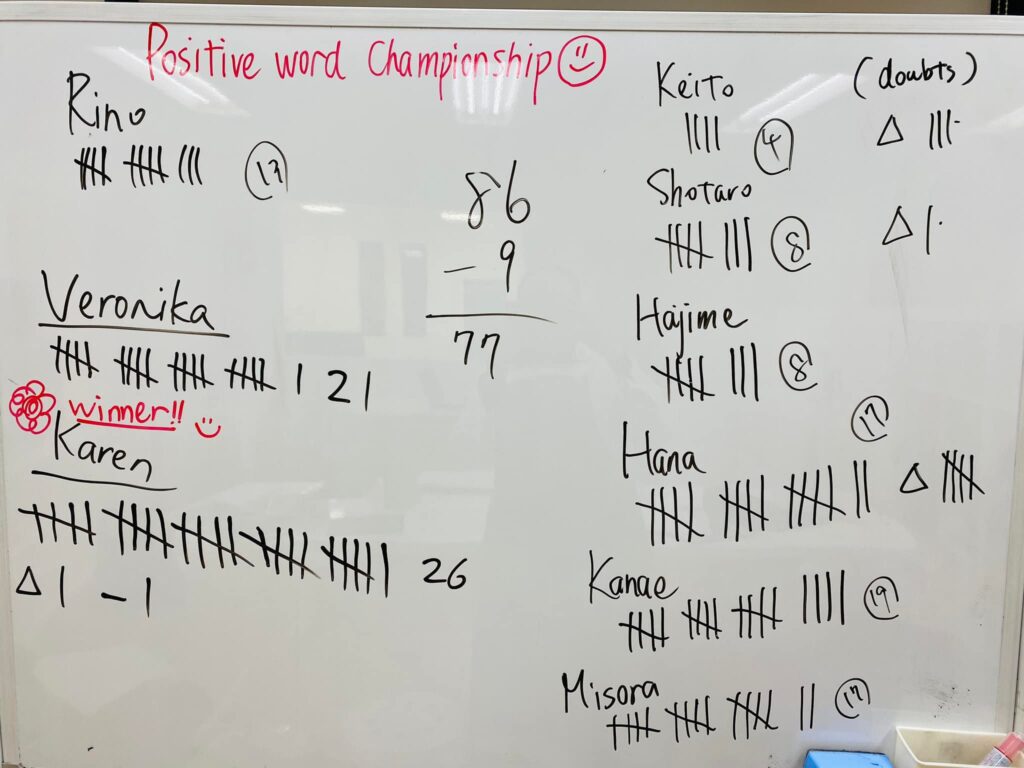 Positive word Championship
Rino
13
Veronika
21
winner!!
Karen
26
- 1
86
- 9
77
Keito
(doubts)
4
Shotaro
8
Hajime
8
Hana
17
Kanae
19
Misora
17